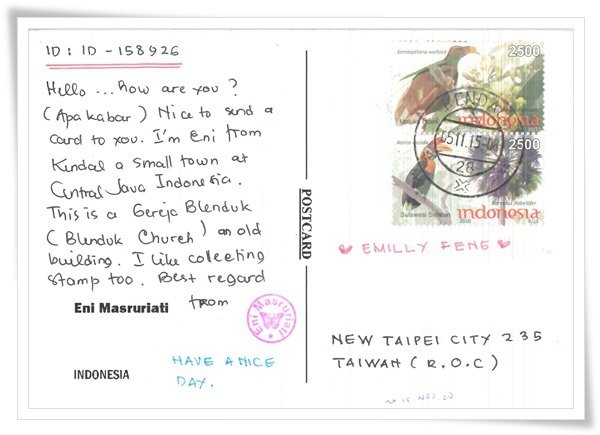 ID: ID-158926
Hello ... how are you?
(Apa kabar) Nice to send a
card to you. I'm Eni from
Kendal a small town at
Central Java Indonesia.
This is a Gereja Blenduk
(Blenduk Church) an old
building. I like collecting
stamp too. Best regard
from
Eni Masruriati
Eni Masruriati
HAVE A NICE
DAY.
INDONESIA
POSTCARD
Semioptera wallacii
2500
indonesia
KENDAL
0511.15-
Aceros cassidix
2500
Sulawesi Selatan
Borassus flabellifer
indonesia
2010
♥ EMILLY FENG ♥
NEW TAIPEI CITY 235
TAIWAN (R.O.C)